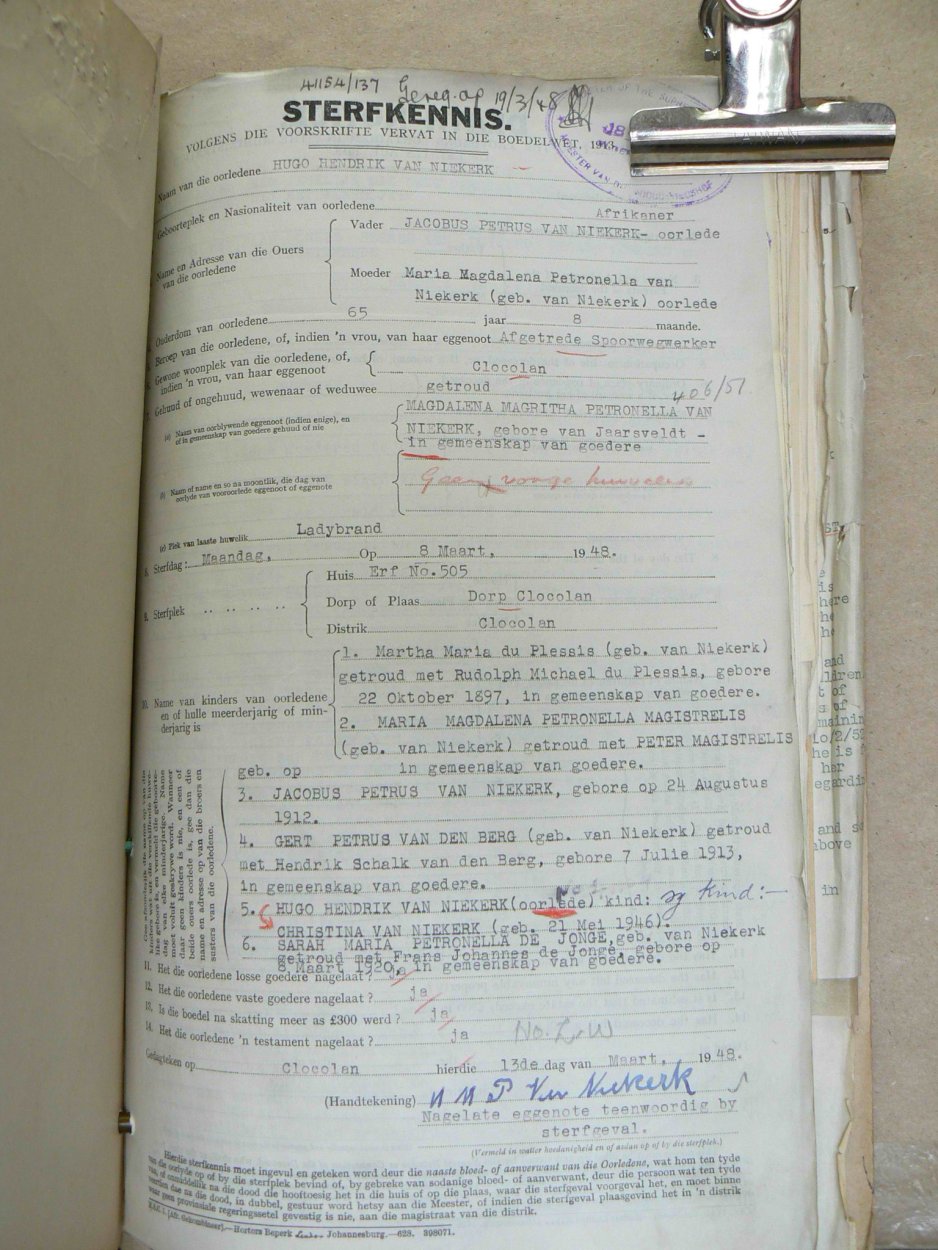 41154/137 Gereg. op 19/3/48
STERFKENNIS.
VOLGENS DIE VOORSKRIFTE VERVAT IN DIE BOEDELWET, 1913.
Naam van die oorledene HUGO HENDRIK VAN NIEKERK
Geboorteplek en Nasionaliteit van oorledene Afrikaner
Vader JACOBUS PETRUS VAN NIEKERK- oorlede
Name en Adresse van die Ouers van die oorledene
Moeder Maria Magdalena Petronella van
Niekerk (geb. van Niekerk) oorlede
Ouderdom van oorledene 65 jaar 8 maande.
Beroep van die oorledene, of, indien 'n vrou, van haar eggenoot Afgetrede Spoorwegwerker
Gewone woonplek van die oorledene, of, indien 'n vrou, van haar eggenoot Clocolan
Gehuud of ongehuud, wewenaar of weduwee getroud 406/51
(a) Naam van oorblywende eggenoot (indien enige), en of in gemeenskap van goedere gehuud of nie
MAGDALENA MAGRITHA PETRONELLA VAN
NIEKERK, gebore van Jaarsveldt -
in gemeenskap van goedere
(b) Naam of name en so na moontlik, die dag van oorlyde van vooroorlede eggenoot of eggenote
Geen vorige huwelik
(c) Plek van laaste huwelik Ladybrand
8. Sterfdag: Maandag, Op 8 Maart, 1948.
Huis Erf No. 505
9. Sterfplek Dorp of Plaas Dorp Clocolan
Distrik Clocolan
10. Name van kinders van oorledene en of hulle meerderjarig of minderjarig is
1. Martha Maria du Plessis (geb. van Niekerk)
getroud met Rudolph Michael du Plessis, gebore
22 Oktober 1897, in gemeenskap van goedere.
2. MARIA MAGDALENA PETRONELLA MAGISTRELIS
(geb. van Niekerk) getroud met PETER MAGISTRELIS
geb. op in gemeenskap van goedere.
3. JACOBUS PETRUS VAN NIEKERK, gebore op 24 Augustus
1912.
4. GERT PETRUS VAN DEN BERG (geb. van Niekerk) getroud
met Hendrik Schalk van den Berg, gebore 7 Julie 1913,
in gemeenskap van goedere.
5. HUGO HENDRIK VAN NIEKERK(oorlede) kind: sy Kind:-
CHRISTINA VAN NIEKERK (geb. 21 Mei 1946).
6. SARAH MARIA PETRONELLA DE JONGE, geb. van Niekerk
getroud met Frans Johannes de Jonge, gebore op
8 Maart 1920, in gemeenskap van goedere.
11. Het die oorledene losse goedere nagelaat? ja
12. Het die oorledene vaste goedere nagelaat? ja
13. Is die boedel na skatting meer as £300 werd? ja
14. Het die oorledene 'n testament nagelaat? ja
Gedagteken op Clocolan hierdie 13de dag van Maart, 1948.
(Handtekening) M M P Van Niekerk
Nagelate eggenote teenwoordig by
sterfgeval.
(Vermeld in watter hoedanigheid en of aldan op of by die sterfplek.)
Hierdie sterfkennis moet ingevul en geteken word deur die naaste bloed- of aanverwant van die Oorledene, wat hom ten tyde
van die oorlyde op of by die sterfplek bevind of, by gebreke van sodanige bloed- of aanverwant, deur die persoon wat ten tyde
van, of onmiddelik na die dood die hooftoesig het in die huis of op die plaas, waar die sterfgeval voorgeval het, en moet binne
veertien dae na die dood, in dubbel, gestuur word hetsy aan die Meester, of indien die sterfgeval plaasgevind het in 'n distrik
waar geen provinsiale regeringssetel gevestig is nie, aan die magistraat van die distrik.
Hortors Beperk Johannesburg.—628. 398071.